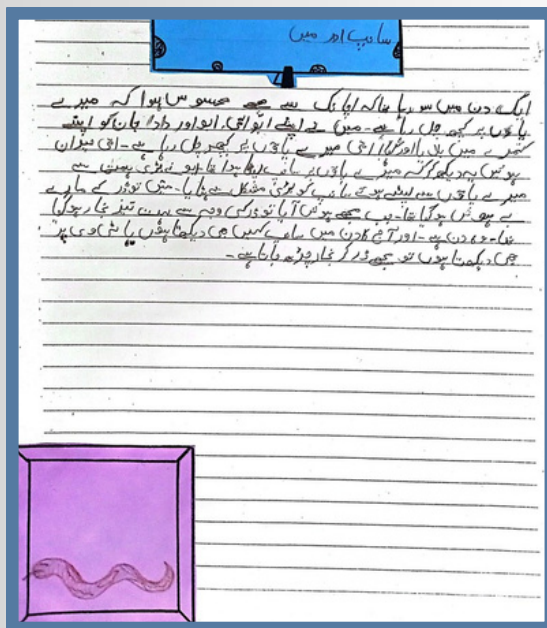 سانپ اور میں
ایک دن میں سو رہا تھا کہ اچانک سے مجھے محسوس ہوا کہ میرے
پاؤں پر کچھ چل رہا ہے۔ میں نے اپنے ابو امی اور دادا جان کو اپنے
کمرے میں بلایا اور کہا امی میرے پاؤں پر کچھ چل رہا ہے۔ امی حیران
ہوئیں یہ دیکھ کر کہ میرے پاؤں پر سانپ تھا۔ ابو نے بڑی
میرے پاؤں سے لپٹے ہوئے سانپ کو بڑی مشکل سے ہٹایا۔ میں تو ڈر کے مارے
بے ہوش ہو گیا تھا۔ جب مجھے ہوش آیا تو ڈر کی وجہ سے بہت تیز بخار ہو گیا
تھا۔ وہ دن ہے اور آج کا دن میں سانپ کہیں بھی دیکھتا ہوں یا ٹی وی پر
بھی دیکھتا ہوں تو مجھے ڈر کر بخار چڑھ جاتا ہے۔